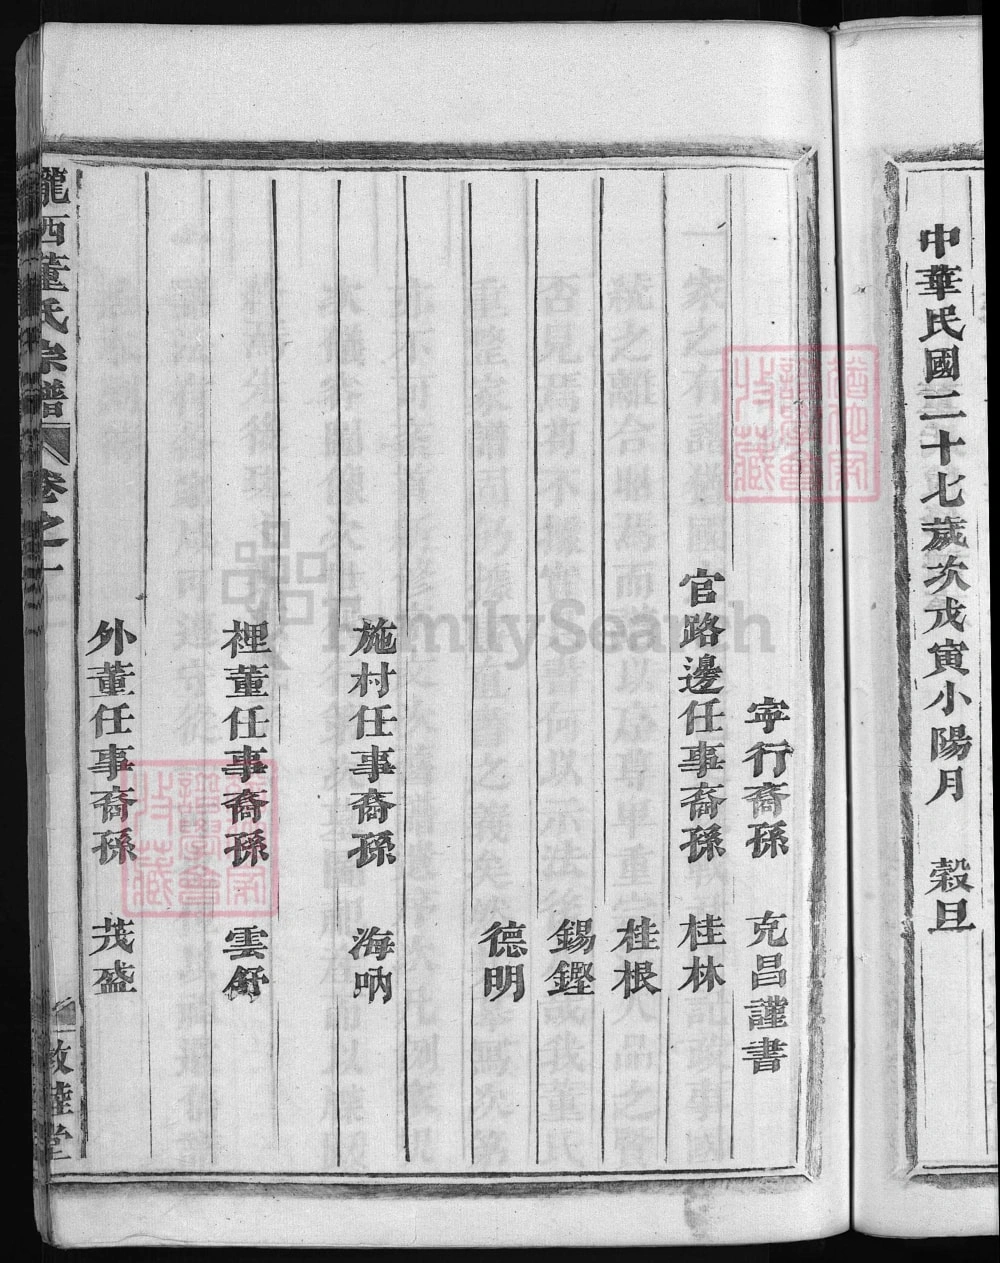 中華民國二十七歲次戊寅小陽月 榖旦
寕行裔孫 克昌謹書
官路邊任事裔孫 桂林
桂根
錫鏗
德明
施村任事裔孫 海吶
裡董任事裔孫 雲舒
外董任事裔孫 茂盛
隴西董氏宗譜 卷之一 敦睦堂
FamilySearch